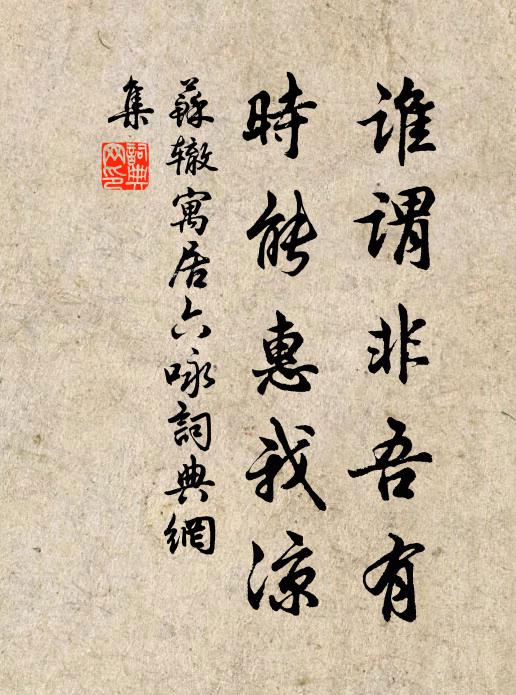 誰謂非吾有
時能惠我涼
蘇轍寓居六咏詞典網
集
詞典
网印